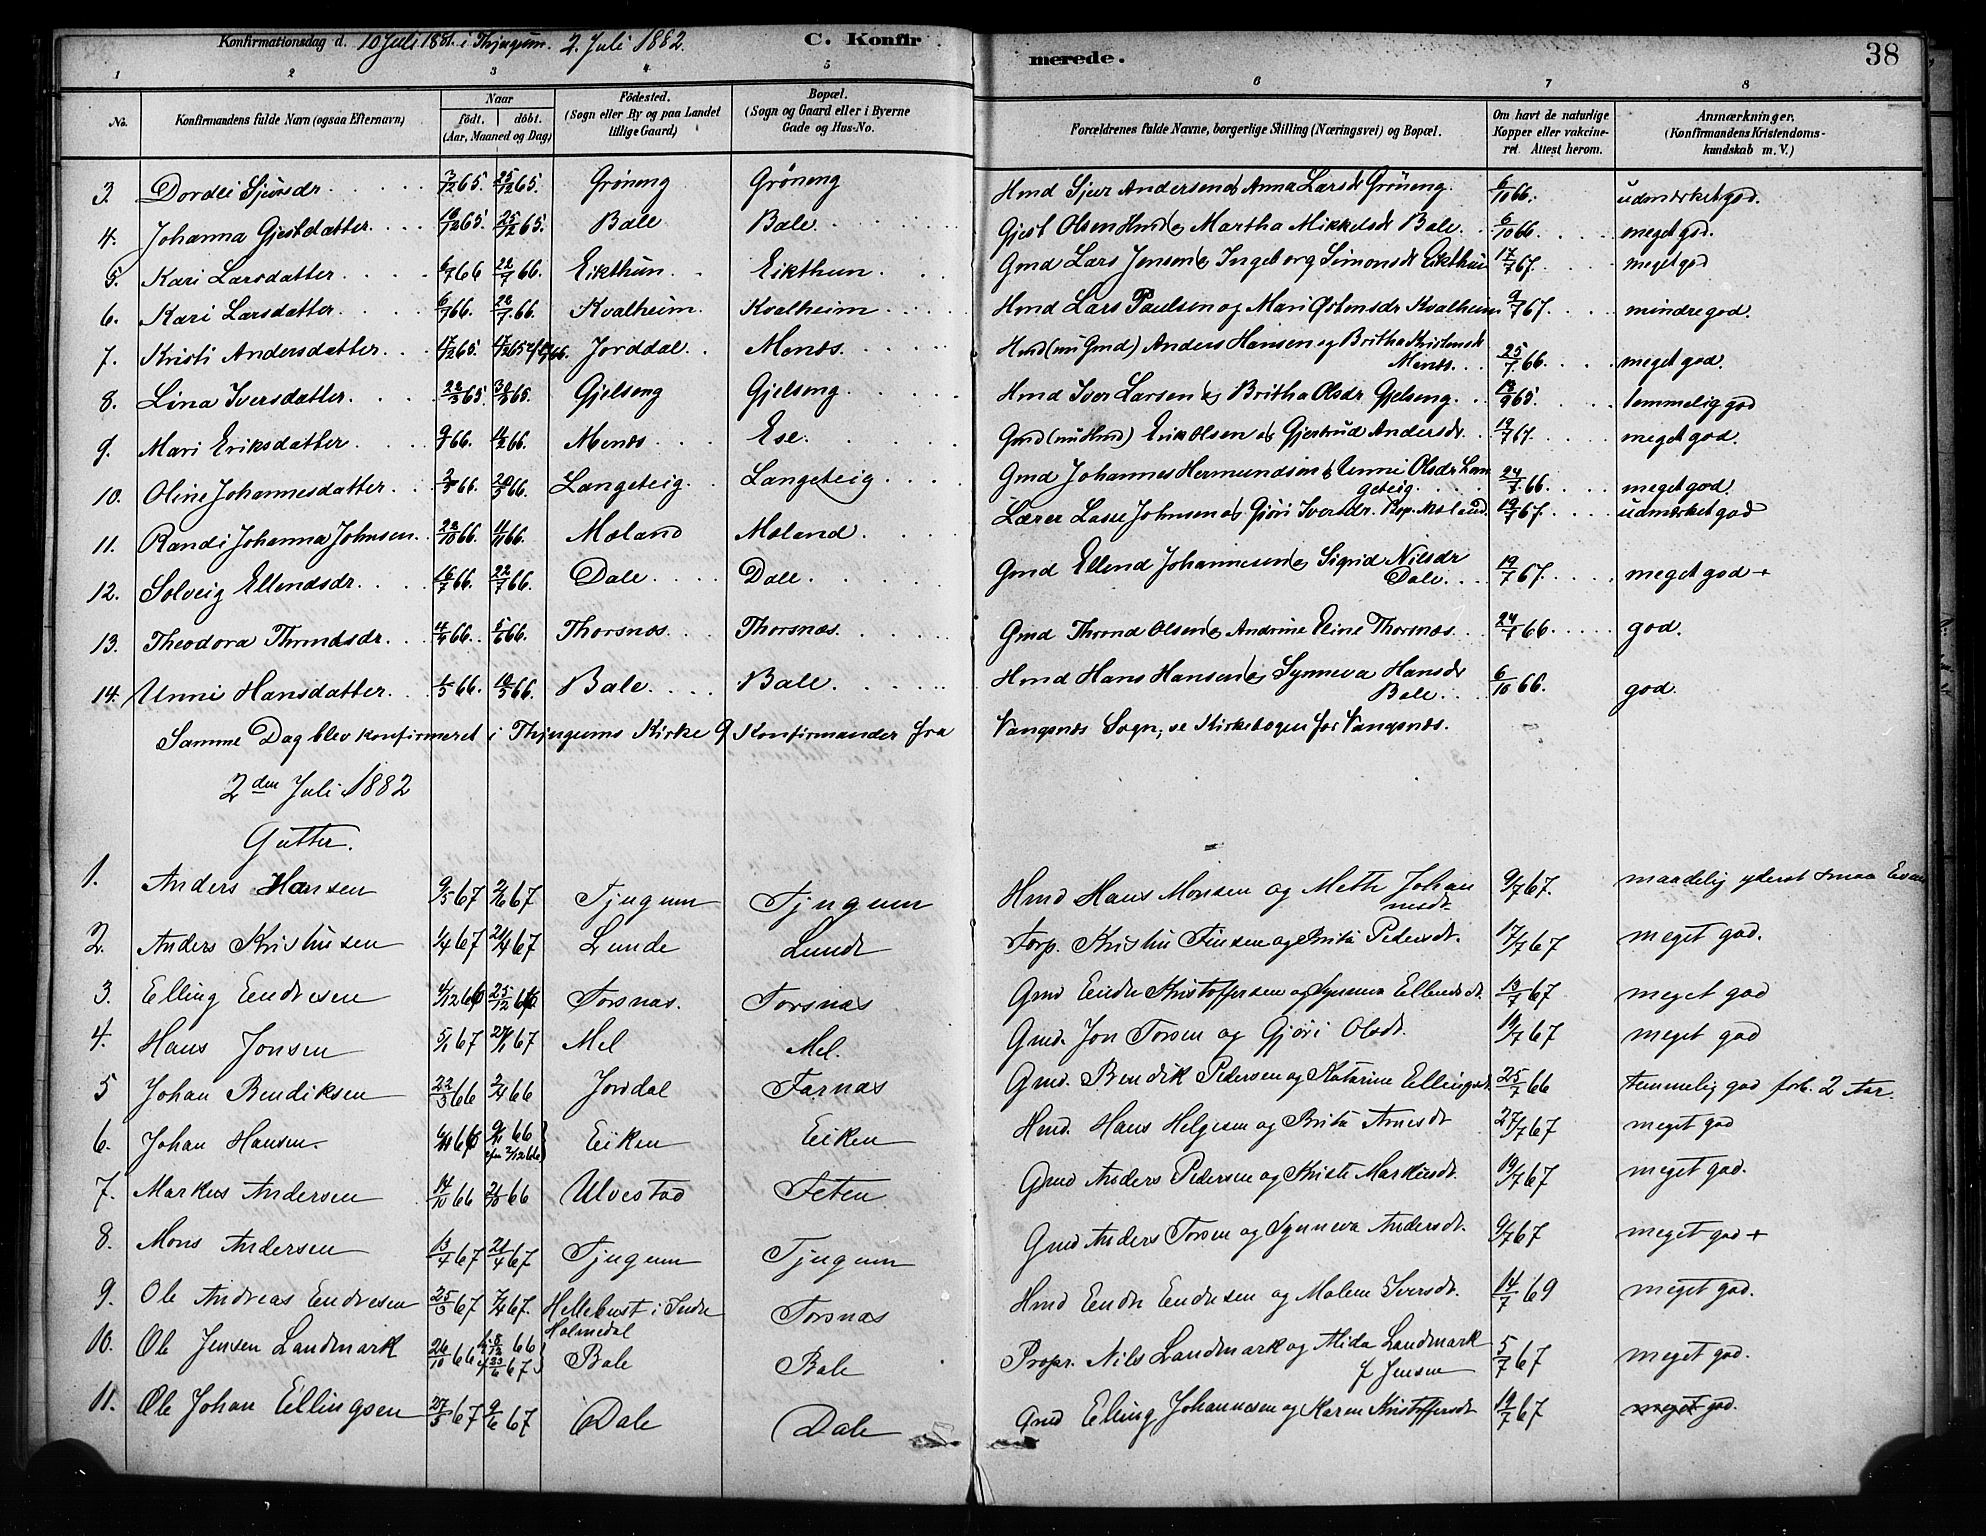 Konfirmationsdag d. 10 Juli 1881 i Thjugum. 2. Juli 1882. C. Konfirmerede. 38
1 2 3 4 5 6 7 8
No. Konfirmandens fulde Navn (ogsaa Efternavn) Naar født. døbt. (Aar, Maaned og Dag) Fødested. (Sogn eller By og paa Landet tillige Gaard) Bopæl. (Sogn og Gaard eller i Byerne Gade og Hus-No. Forældrenes fulde Navne, borgerlige Stilling (Næringsvei) og Bopæl. Om havt de naturlige Kopper eller vakcineret. Attest herom. Anmærkninger. (Konfirmandens Kristendomskundskab m. V.)
3. Dordei Sjursdr 3/12 65. 25/12 65. Grøneng Grøneng Hmd Sjur Andersen & Anna Larsdr Grøneng. 6/10 66. udmærket god.
4. Johanna Gjestdatter 18/12 65. 25/12 65. Bale Bale Gjest Olsen Hmd & Martha Mikkelsdr Bale. 6/10 66. meget god.
5. Kari Larsdatter 6/7 66 22/7 66. Eikthun Eikthun Gmd Lars Jensen & Ingeborg Simonsdr Eikthun 17/7 67. meget god
6. Kari Larsdatter 6/7 66. 22/7 66. Kvalheim Kvalheim Hmd Lars Paulsen og Mari Østensdr Kvalheim 9/7 67. mindre god.
7. Kristi Andersdatter 65. Jorddal Menes. Hmd (nu Gmd) Anders Hansen og Britha Kristensdr Menes. 25/7 66. meget god.
8. Lina Iversdatter 65. 65. Gjelseng Gjelseng Hmd Iver Larsen & Britha Olsdr Gjelseng. 13/9 65. temmelig god
9. Mari Eriksdatter 66. 66. Menes Ese Gmd (nu Hmd) Erik Olsen & Gjertrud Andersdr. 19/7 67. meget god.
10. Oline Johannesdatter 66. 66. Langeteig Langeteig Gmd Johannes Hermundsen & Unni Olsdr Langeteig 24/7 66. meget god.
11. Randi Johanna Johnsen 22/10 66. 11/11 66. Mæland Mæland Lærer Lasse Johnsen & Gjøri Iversdr. Bop. Mæland. 19/7 67. udmærket god
12. Solveig Ellendsdr. 16/7 66. 22/7 66. Dale Dale Gmd Ellend Johannesen & Sigrid Nilsdr Dale 19/7 67. meget god +
13. Theodora Throndsdr. 66. 66. Thorsnæs Thorsnæs Gmd Thrond Olsen & Andrine Eline Thorsnæs. 24/7 66. god.
14. Unni Hansdatter 1/5 66. 10/5 66. Bale Bale Hmd Hans Hansen & Synneva Hansdr Bale 6/10 66. god.
Samme Dag blev konfirmeret i Thjugums Kirke 9 Konfirmander fra Vangsnæs Sogn, se Kirkebogen for Vangsnæs.
2den Juli 1882
Gutter.
1. Anders Hansen 9/5 67 2/6 67 Tjugum Tjugum Hmd Hans Monsen og Methe Johannesdt. 9/7 67. maadelig yderst smaa Evner
2. Anders Kristensen 1/4 67 21/4 67 Lunde Lunde Forp. Kristen Finsen og Brita Pedersdt. 17/7 67 meget god.
3. Elling Endresen 4/12 66 25/12 66 Torsnæs. Torsnæs Gmd Endre Kristoffersen og Synneva Ellendsdt. 13/7 67 meget god
4. Hans Jonsen 5/1 67 27/1 67 Mel Mel. Gmd. Jon Torsen og Gjøri Olsdt. 19/7 67 meget god
5 Johan Bendiksen 22/3 66 2/4 66 Jordal Farnæs Gmd. Bendik Pedersen og Katarine Ellingsdt. 25/7 66 temmelig god forb. 2 Aar.
6. Johan Hansen. 66 66 Eiken Eiken Hmd. Hans Helgesen og Brita Arnesdt 27/7 67 meget god
7. Markus Andersen 14/10 66 21/10 66 Ulvestad Feten Gmd Anders Pedersen og Kristi Markusdt. 19/7 67 meget god.
8. Mons Andersen 13/4 67 21/4 67 Tjugum Tjugum Gmd Anders Torsen og Synneva Andersdt. 9/7 67 meget god +
9. Ole Andreas Endresen 25/3 67 7/4 67. Hellebust i Indre Holmedal Torsnæs Hmd Endre Endresen og Malene Iversdt. 14/7 69 meget god.
10. Ole Jensen Landmark 26/10 66 66 67 Bale Bale Propr. Nils Landmark og Alida Landmark f Jensen 5/7 67 meget god.
11. Ole Johan Ellingsen 27/5 67 9/6 67 Dale Dale Gmd Elling Johannesen og Karen Kristoffersdt 19/7 67 meget god.